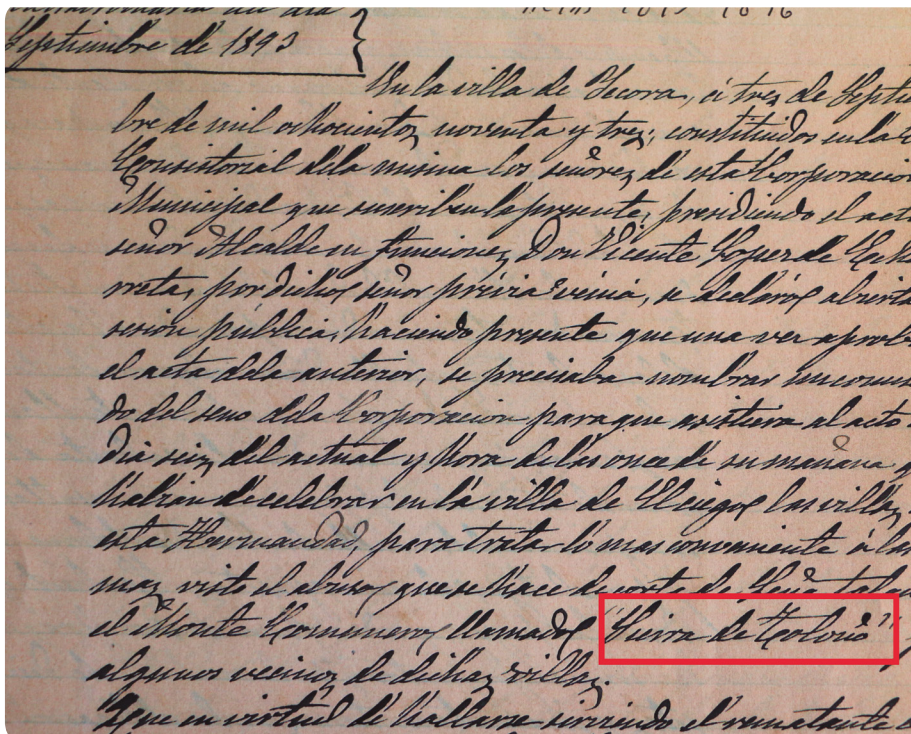 Septiembre de 1893
En la villa de Yécora, á tres de Septiem
bre de mil ochocientos noventa y tres; constituidos en la
Consistorial de la misma los señores de esta Corporacion
Municipal que suscriben la presente, presidiendo el acto
señor Alcalde en funciones Don Vicente Lopez de
rreta, por dicho señor prévia venia, se declaró abierta
sesión pública, haciendo presente que una vez aprob
el acta de la anterior, se precisaba nombrar un comis
do del seno de la Corporacion para que asistiera al acto
dia seis del actual y hora de las once de su mañana
habian de celebrar en la villa de Elciego las villas
esta Hermandad, para tratar lo mas conveniente á las
mas visto el abuso que se hace de corte de Leña
el Monte Comunero llamado "Sierra de Toloño"
algunos vecinos de dichas villas.
Que en virtud de hallarse sirviendo el rematante